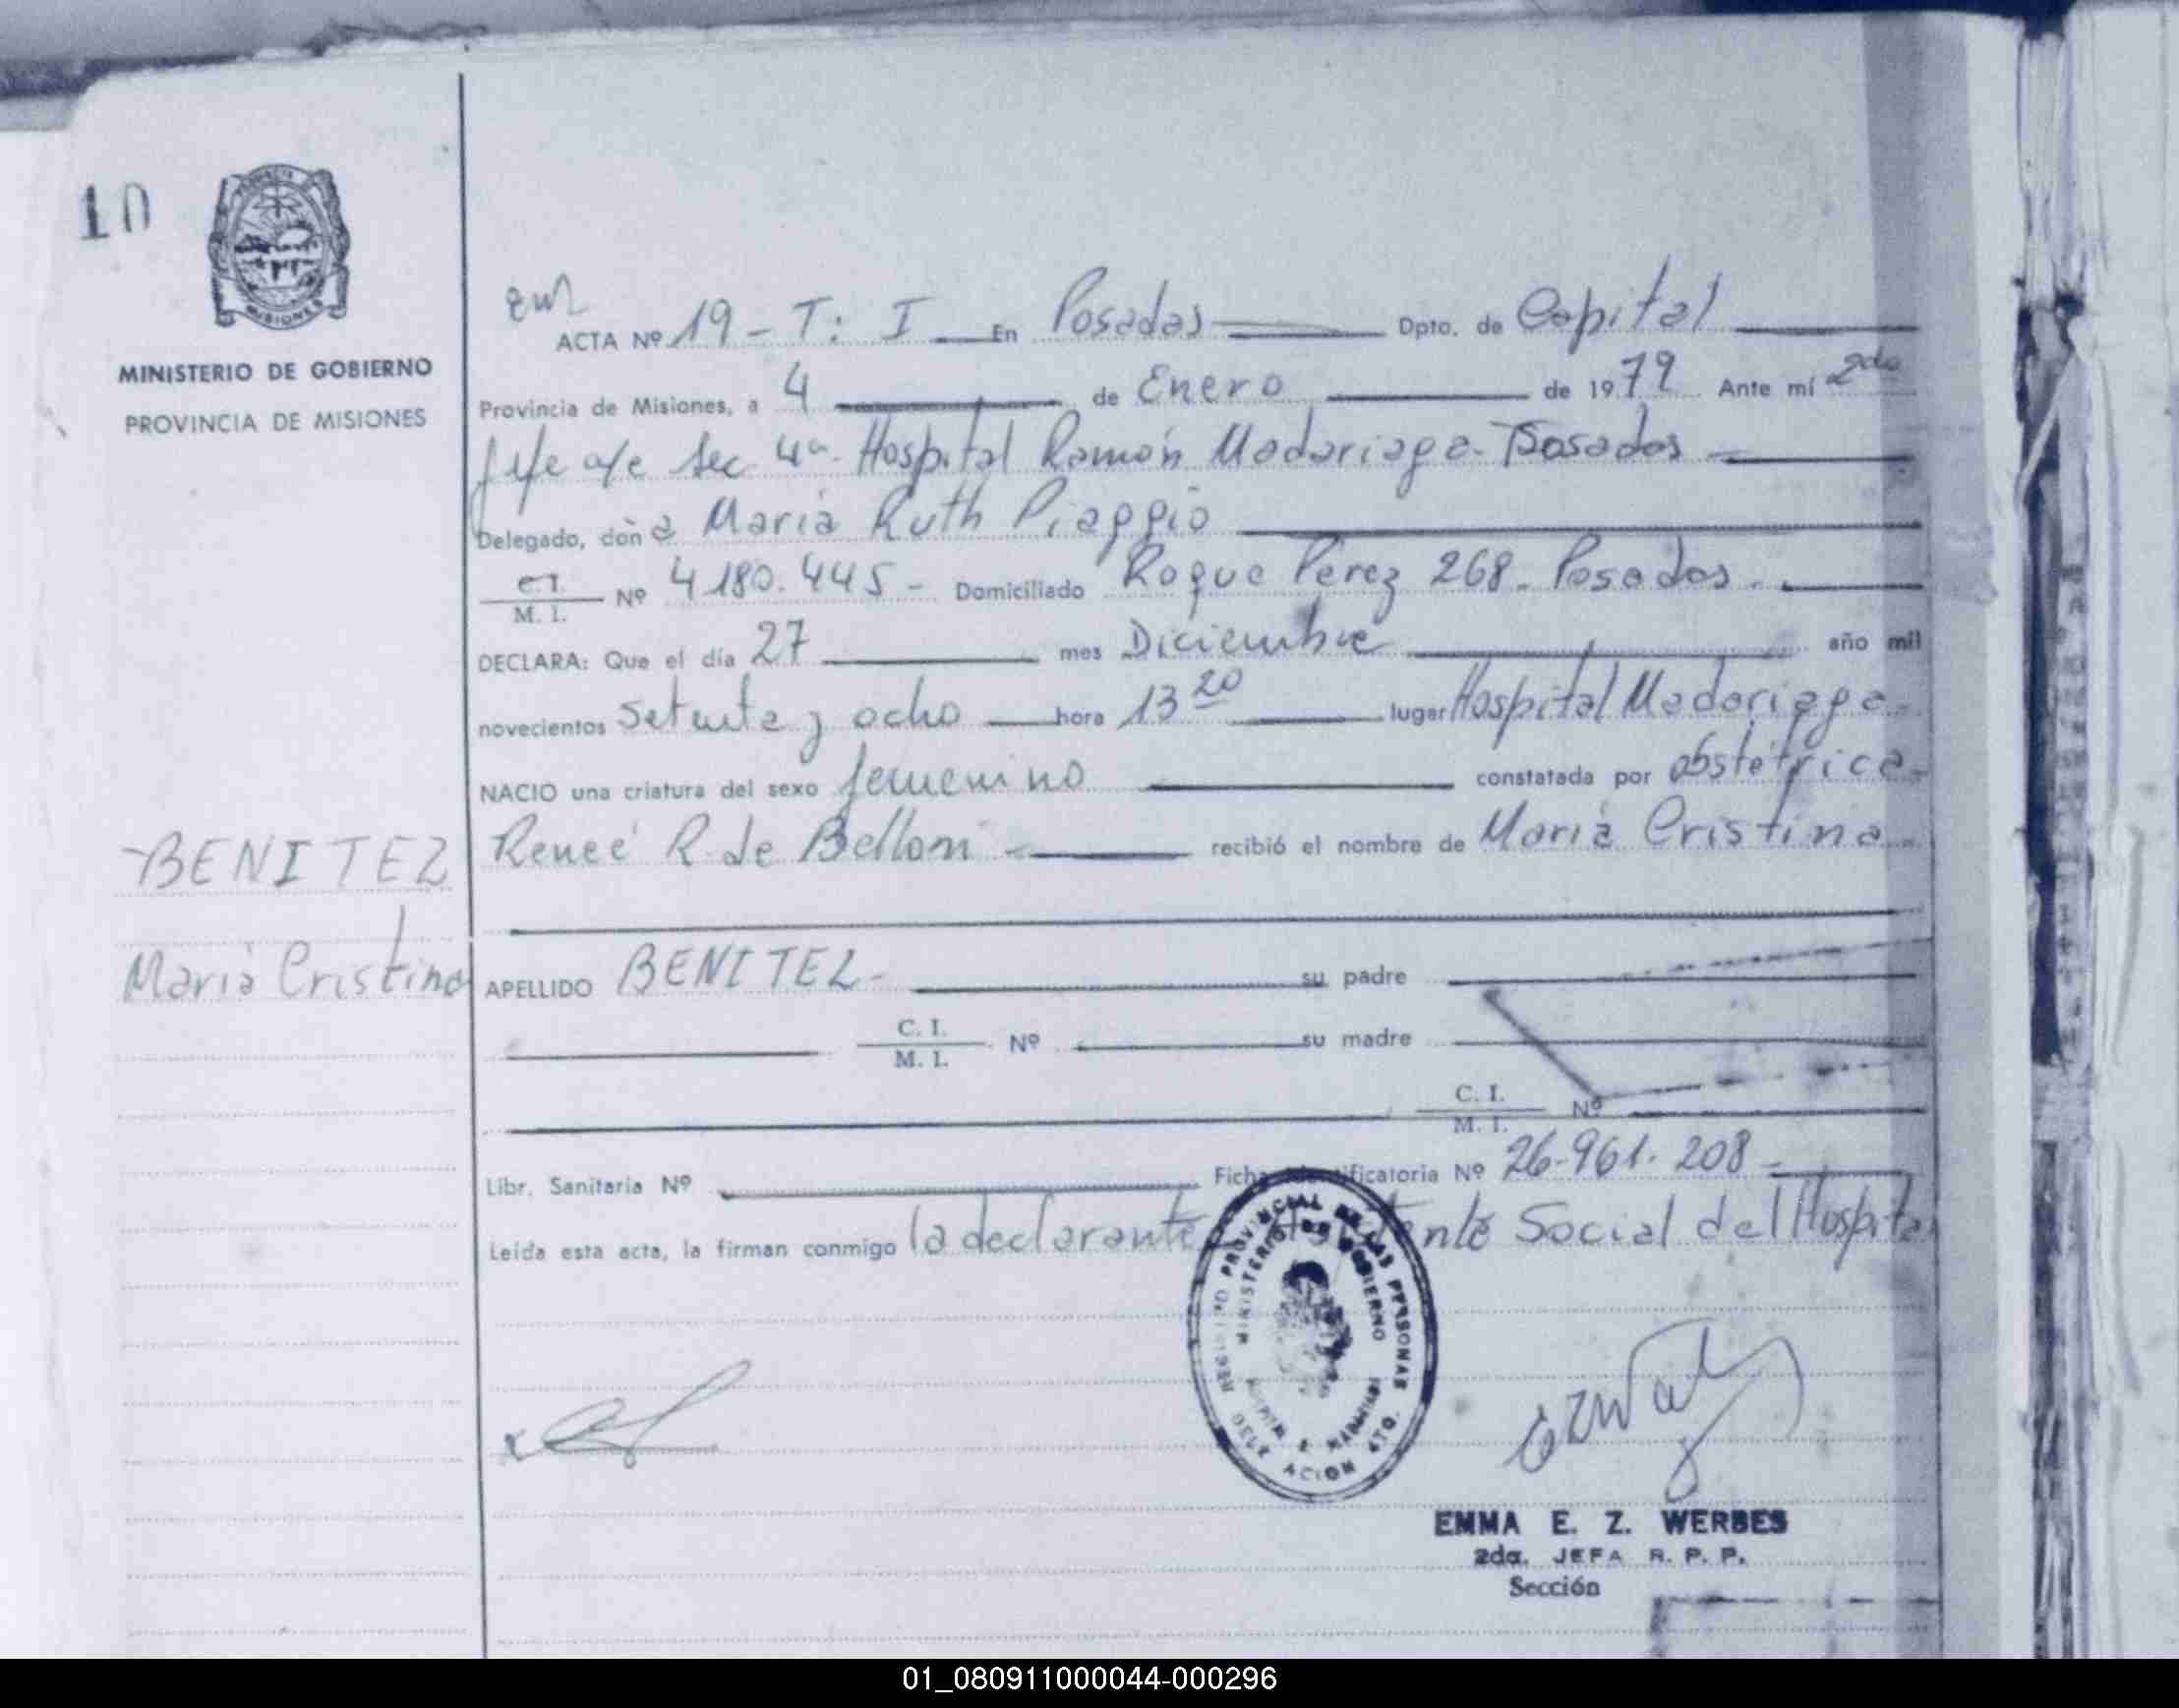 10
MISIONES
MINISTERIO DE GOBIERNO
PROVINCIA DE MISIONES
BENITEZ
María Cristina
ACTA Nº 19 - T: I En Posadas Dpto. de Capital
Provincia de Misiones, a 4 de Enero de 1979 Ante mí 2do
Jefe a/c Sec 4a. Hospital Ramón Madariaga - Posadas
Delegado, doña María Ruth Piaggio
C.I. M. I. Nº 4180.445 - Domiciliado Roque Perez 268. Posados.
DECLARA: Que el día 27 mes Diciembre año mil
novecientos setenta y ocho hora 13 20 lugar Hospital Madariaga.
NACIO una criatura del sexo femenino constatada por obstétrica -
Reneé R. de Belloni recibió el nombre de María Cristina
APELLIDO BENITEZ - su padre
C. I. M. I. Nº su madre
C. I. M. I. Nº
Libr. Sanitaria Nº Ficha Identificatoria Nº 26.961.208
Leída esta acta, la firman conmigo la declarante Social del Hospital
REGISTRO PROVINCIAL DE LAS PERSONAS
MINISTERIO DE GOBIERNO
EMMA E. Z. WERBES
2da. JEFA R. P. P.
Sección
01_080911000044-000296